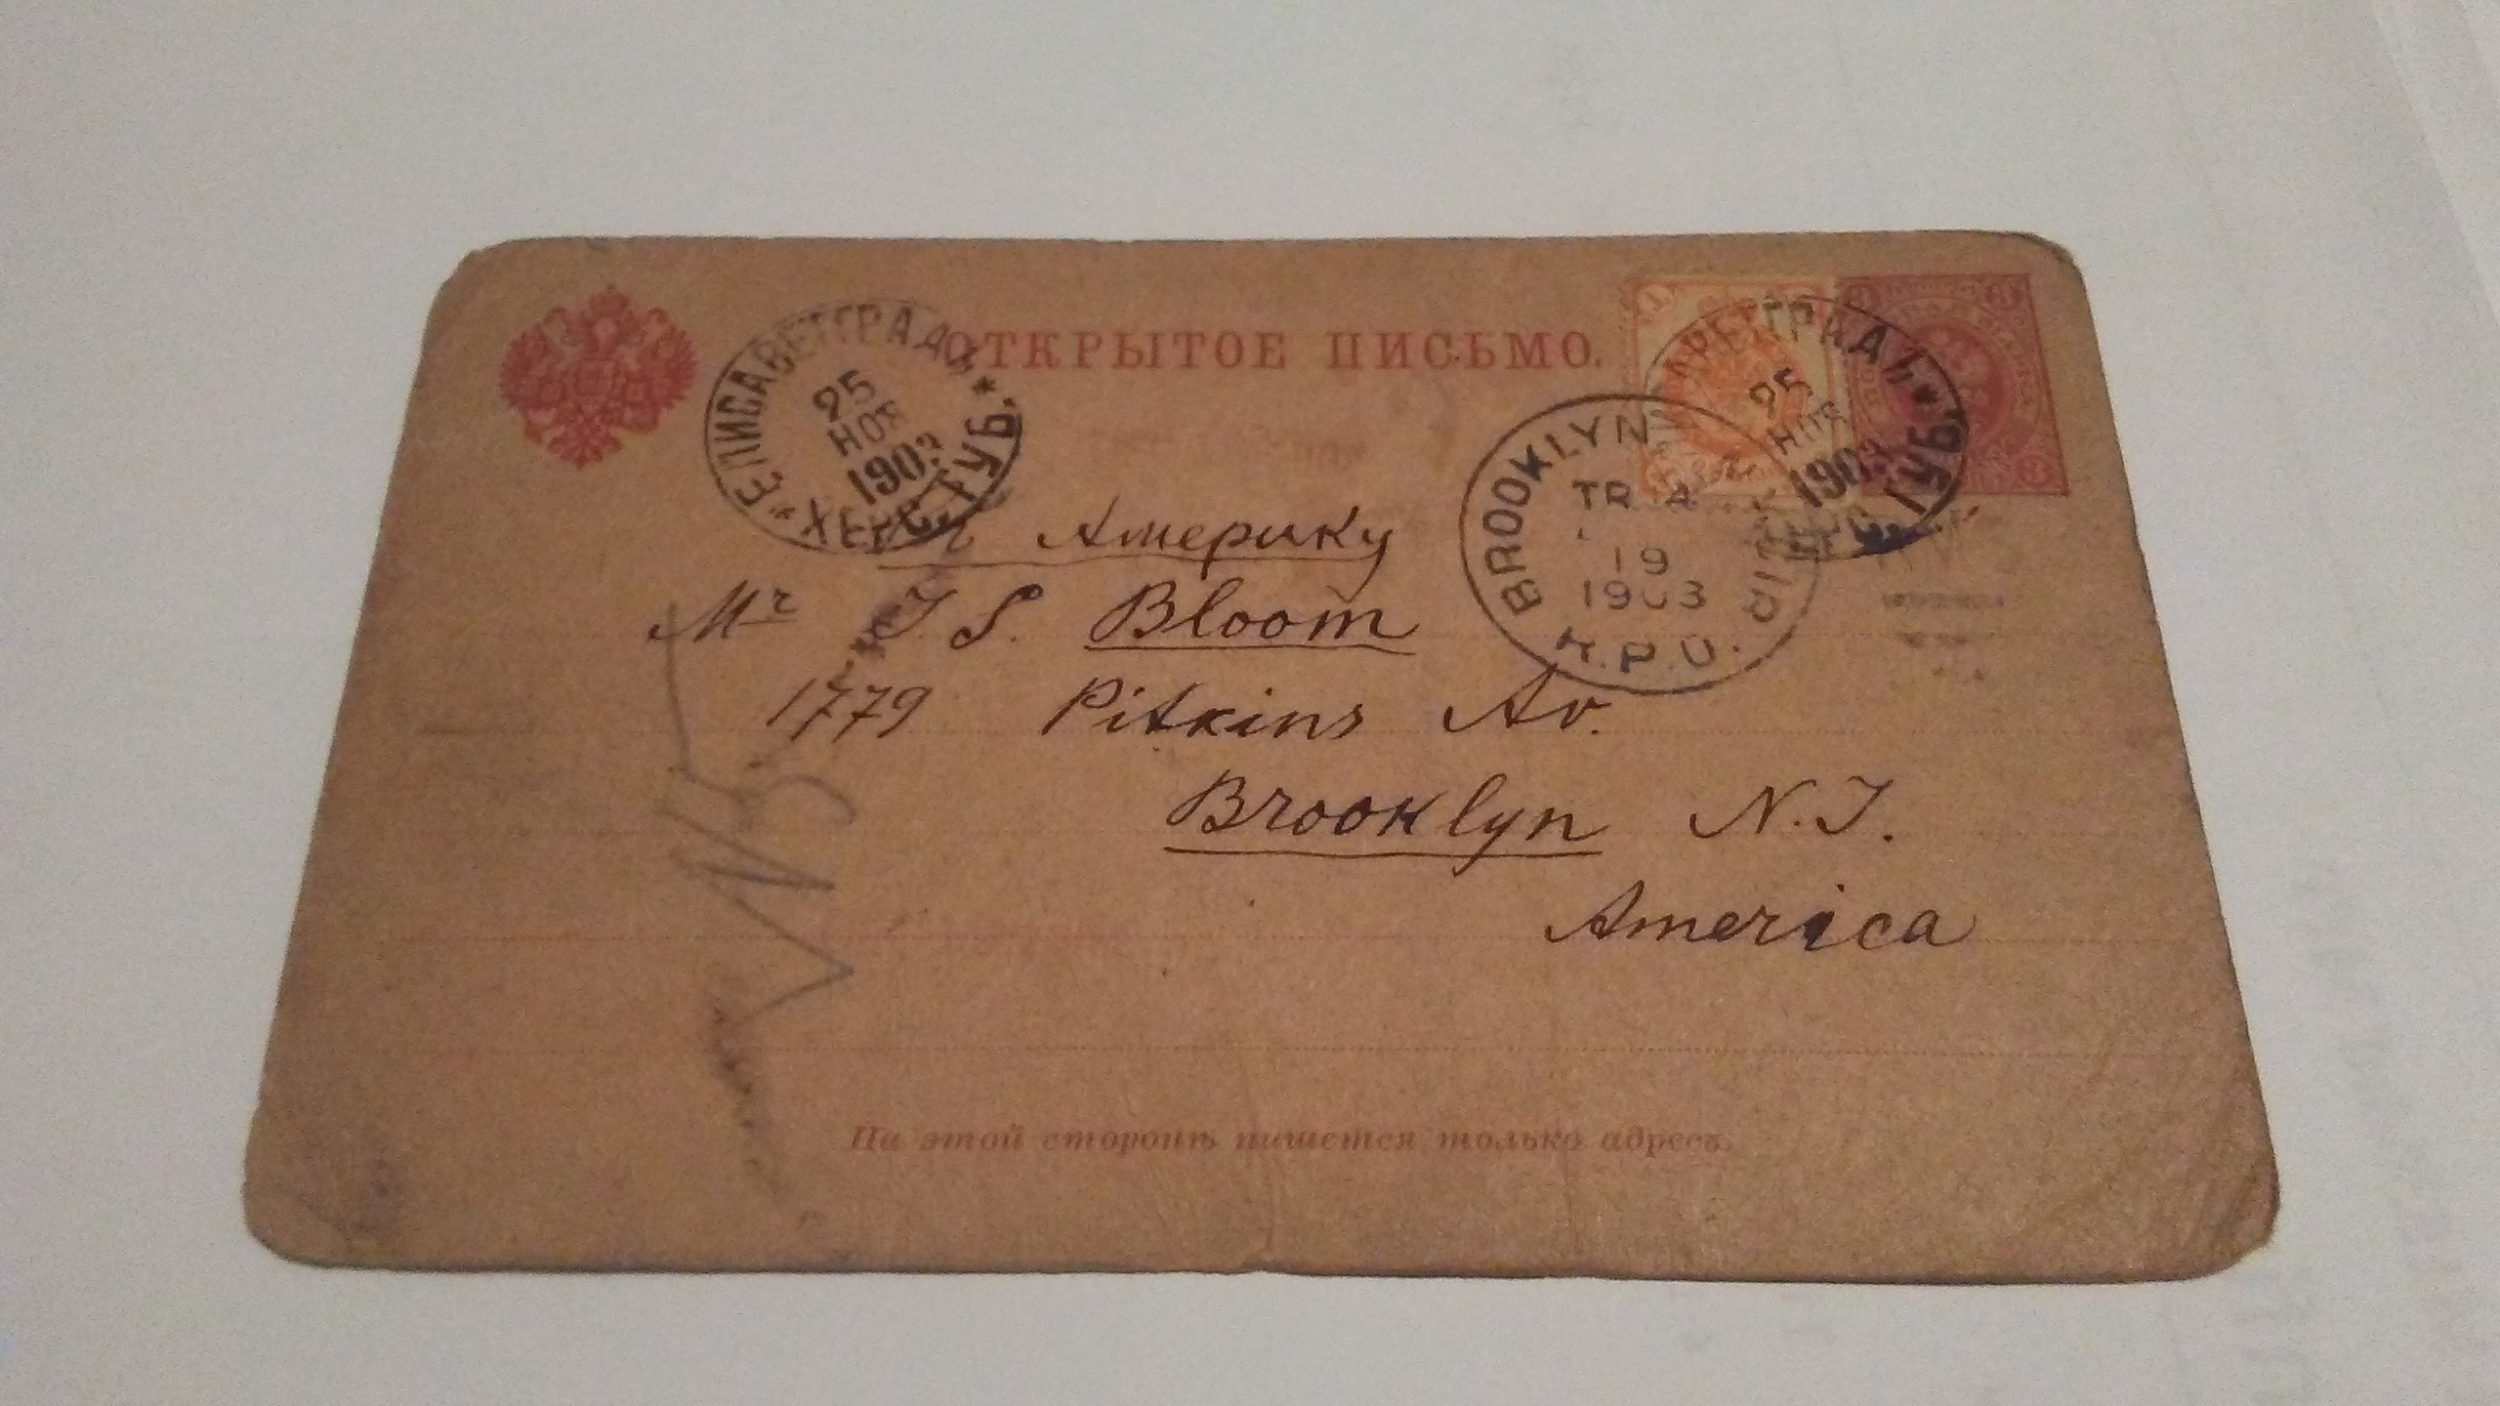 ОТКРЫТОЕ ПИСЬМО.
* ЕЛИСАВЕТГРАДЪ * ХЕРС. ГУБ.
25
НОЯ
1903
25
НОЯ
1903
ГУБ.
BROOKLYN
TR. 4
19
1903
R.P.O.
Америку
Mr J. S. Bloom
1779 Pitkins Av.
Brooklyn N.J.
America
На этой сторонѣ пишется только адресъ.